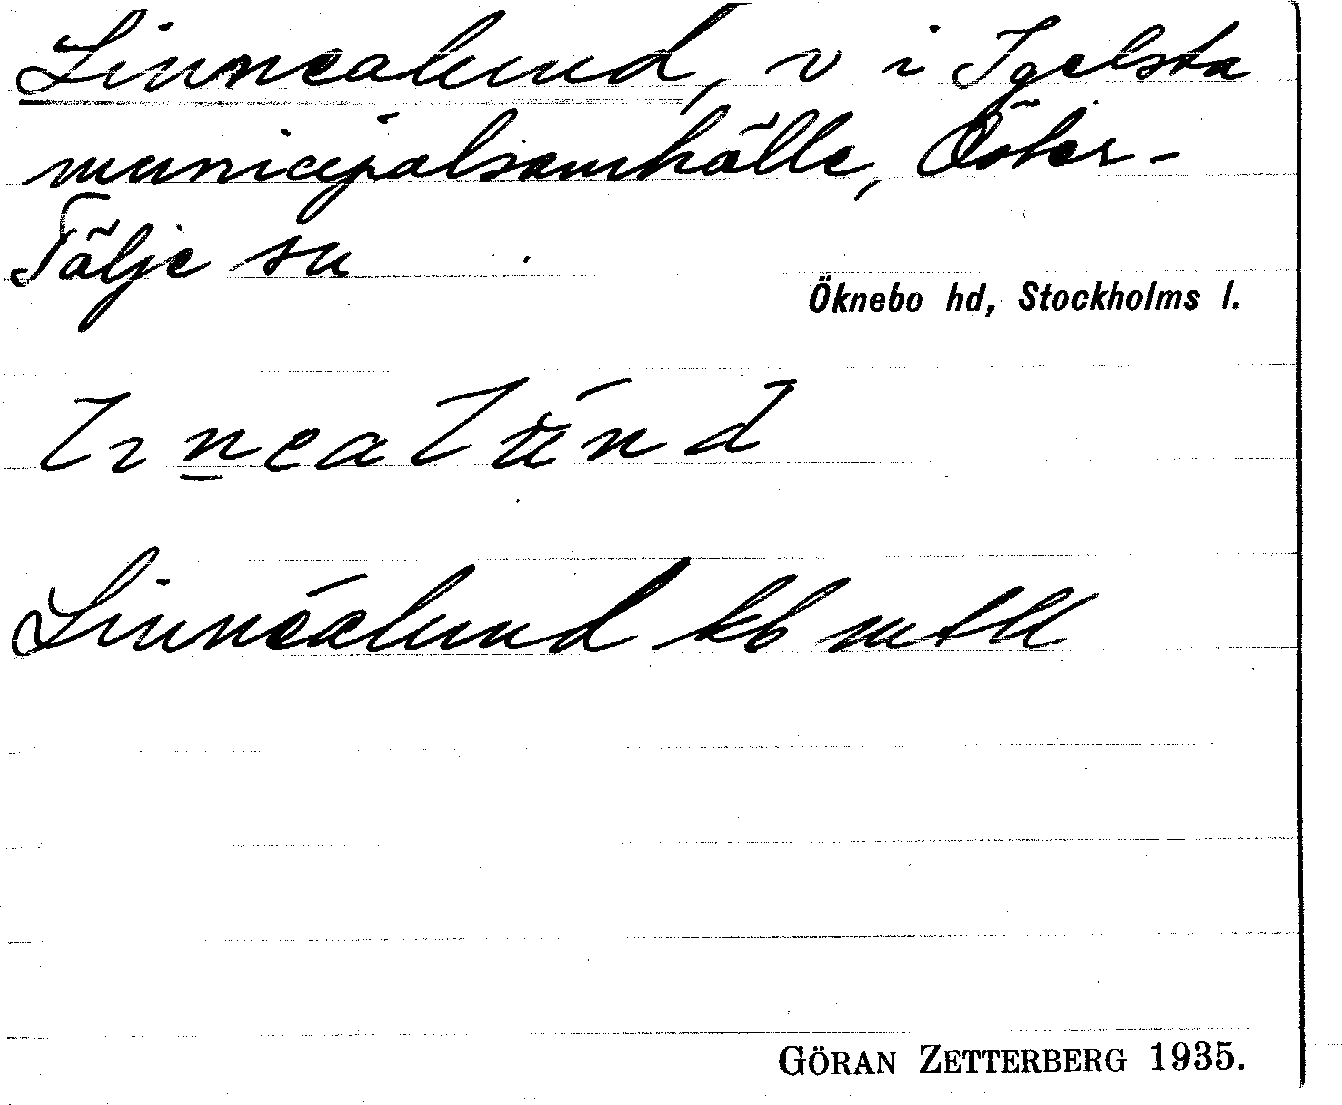 Linnealund, v i Igelsta
municipalsamhälle, Öster-
Tälje sn
Öknebo hd, Stockholms l.
Linnéalund kb mtl
GÖRAN ZETTERBERG 1935.